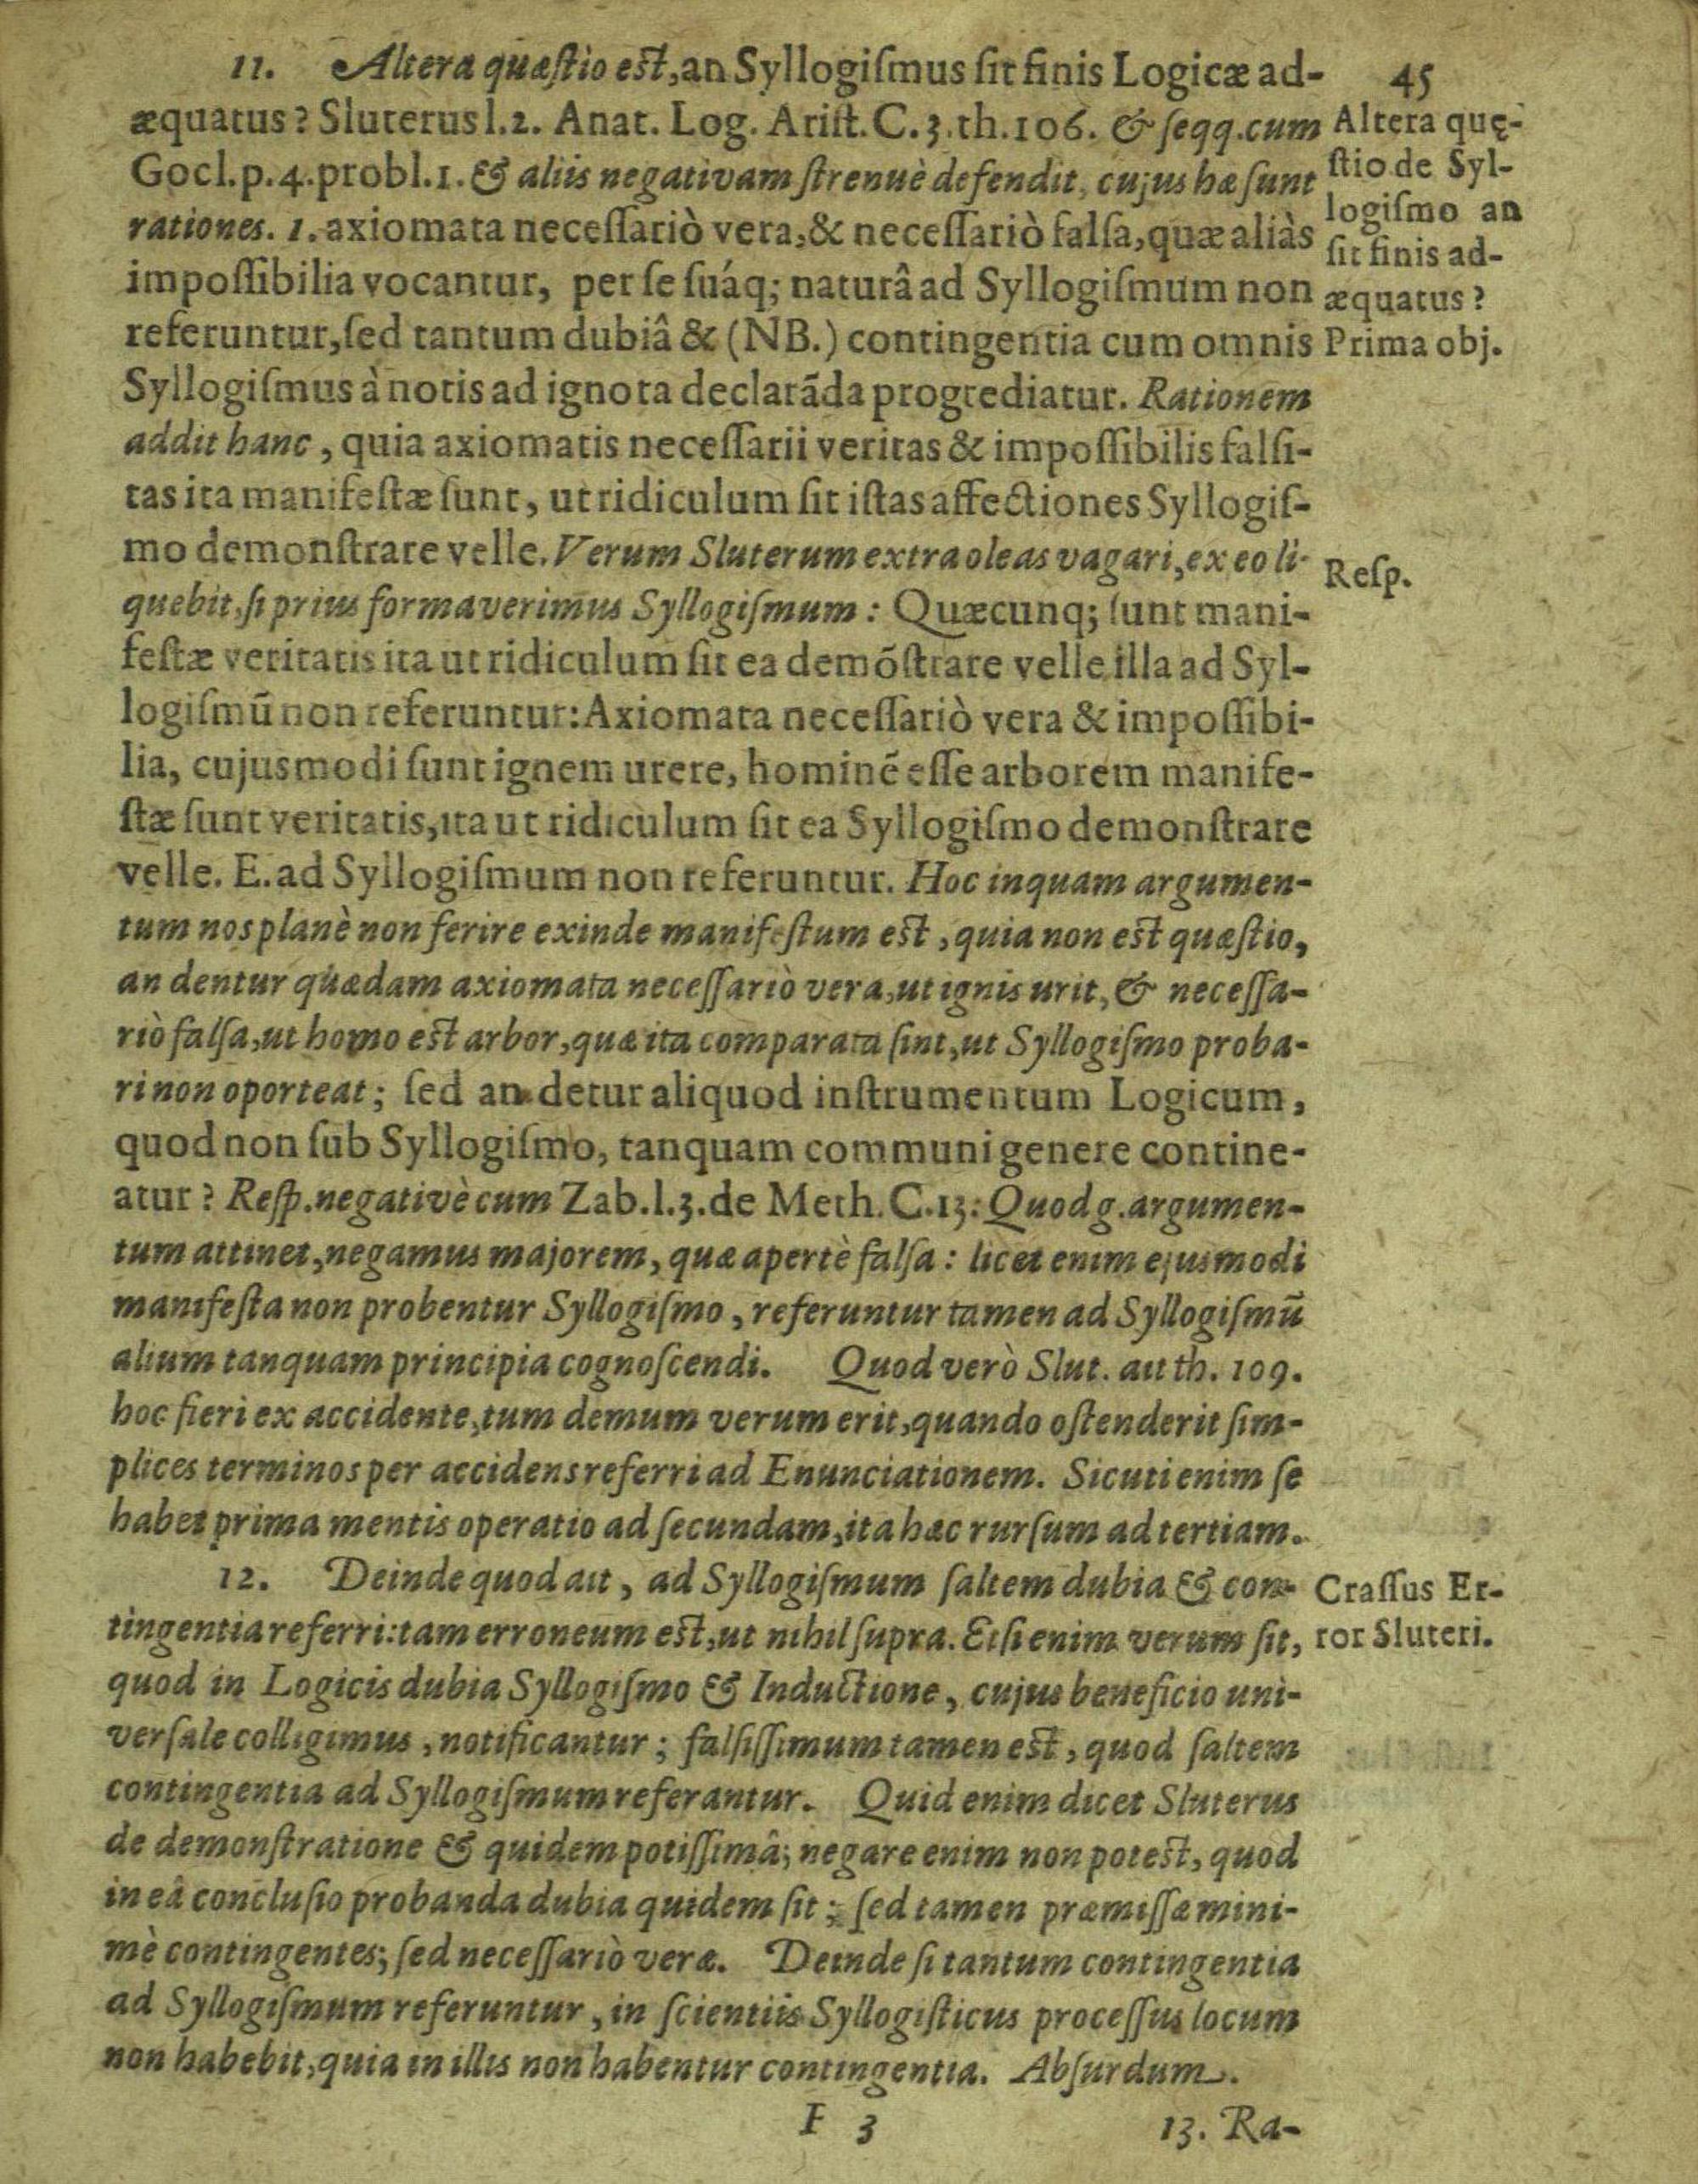 45
11. Altera quæſtio est, an Syllogiſmus ſit finis Logicæ ad-
æquatus? Sluterus l.2. Anat. Log. Ariſt. C.3. th.106. & ſeqq. cum
Gocl. p.4. probl.1. & aliis negativam ſtrenuè defendit, cujus hæ ſunt
rationes. 1. axiomata neceſſariò vera, & neceſſariò falſa, quæ aliàs
impoſſibilia vocantur, per ſe ſuáq; naturâ ad Syllogiſmum non
referuntur, ſed tantum dubiâ & (NB.) contingentia cum omnis
Syllogiſmus à notis ad ignota declarãda progrediatur. Rationem
addit hanc, quia axiomatis neceſſarii veritas & impoſſibilis falſi-
tas ita manifeſtæ ſunt, ut ridiculum ſit iſtas affectiones Syllogiſ-
mo demonſtrare velle. Verum Sluterum extra oleas vagari, ex eo li-
quebit, ſi prius formaverimus Syllogiſmum: Quæcunq; ſunt mani-
feſtæ veritatis ita ut ridiculum ſit ea demõſtrare velle illa ad Syl-
logiſmũ non referuntur: Axiomata neceſſariò vera & impoſſibi-
lia, cujusmodi ſunt ignem urere, hominẽ eſſe arborem manife-
ſtæ ſunt veritatis, ita ut ridiculum ſit ea Syllogiſmo demonſtrare
velle. E. ad Syllogiſmum non referuntur. Hoc inquam argumen-
tum nos planè non ferire exinde manifeſtum est, quia non est quæſtio,
an dentur quædam axiomata neceſſariò vera, ut ignis urit, & neceſſa-
riò falſa, ut homo est arbor, quæ ita comparata ſint, ut Syllogiſmo proba-
ri non oporteat; ſed an detur aliquod inſtrumentum Logicum,
quod non ſub Syllogiſmo, tanquam communi genere contine-
atur? Reſp. negativè cum Zab. l.3. de Meth. C.13: Quod g. argumen-
tum attinet, negamus majorem, quæ apertè falſa: licet enim ejusmodi
manifeſta non probentur Syllogiſmo, referuntur tamen ad Syllogiſmũ
alium tanquam principia cognoſcendi. Quod verò Slut. ait th. 109.
hoc fieri ex accidente, tum demum verum erit, quando oſtenderit ſim-
plices terminos per accidens referri ad Enunciationem. Sicuti enim ſe
habet prima mentis operatio ad ſecundam, ita hæc rurſum ad tertiam.
12. Deinde quod ait, ad Syllogiſmum ſaltem dubia & con-
tingentia referri: tam erroneum est, ut nihil ſupra. Etſi enim verum ſit,
quod in Logicis dubia Syllogiſmo & Inductione, cujus beneficio uni-
verſale colligimus, notificantur; falſiſſimum tamen est, quod ſaltem
contingentia ad Syllogiſmum referantur. Quid enim dicet Sluterus
de demonſtratione & quidem potiſſimâ; negare enim non potest, quod
in eâ concluſio probanda dubia quidem ſit; ſed tamen præmiſſæ mini-
mè contingentes; ſed neceſſariò veræ. Deinde ſi tantum contingentia
ad Syllogiſmum referuntur, in ſcientiis Syllogiſticus proceſſus locum
non habebit, quia in illis non habentur contingentia. Abſurdum.
F 3
13. Ra-
Altera quę-
ſtio de Syl-
logiſmo an
ſit finis ad-
æquatus?
Prima obj.
Reſp.
Craſſus Er-
ror Sluteri.